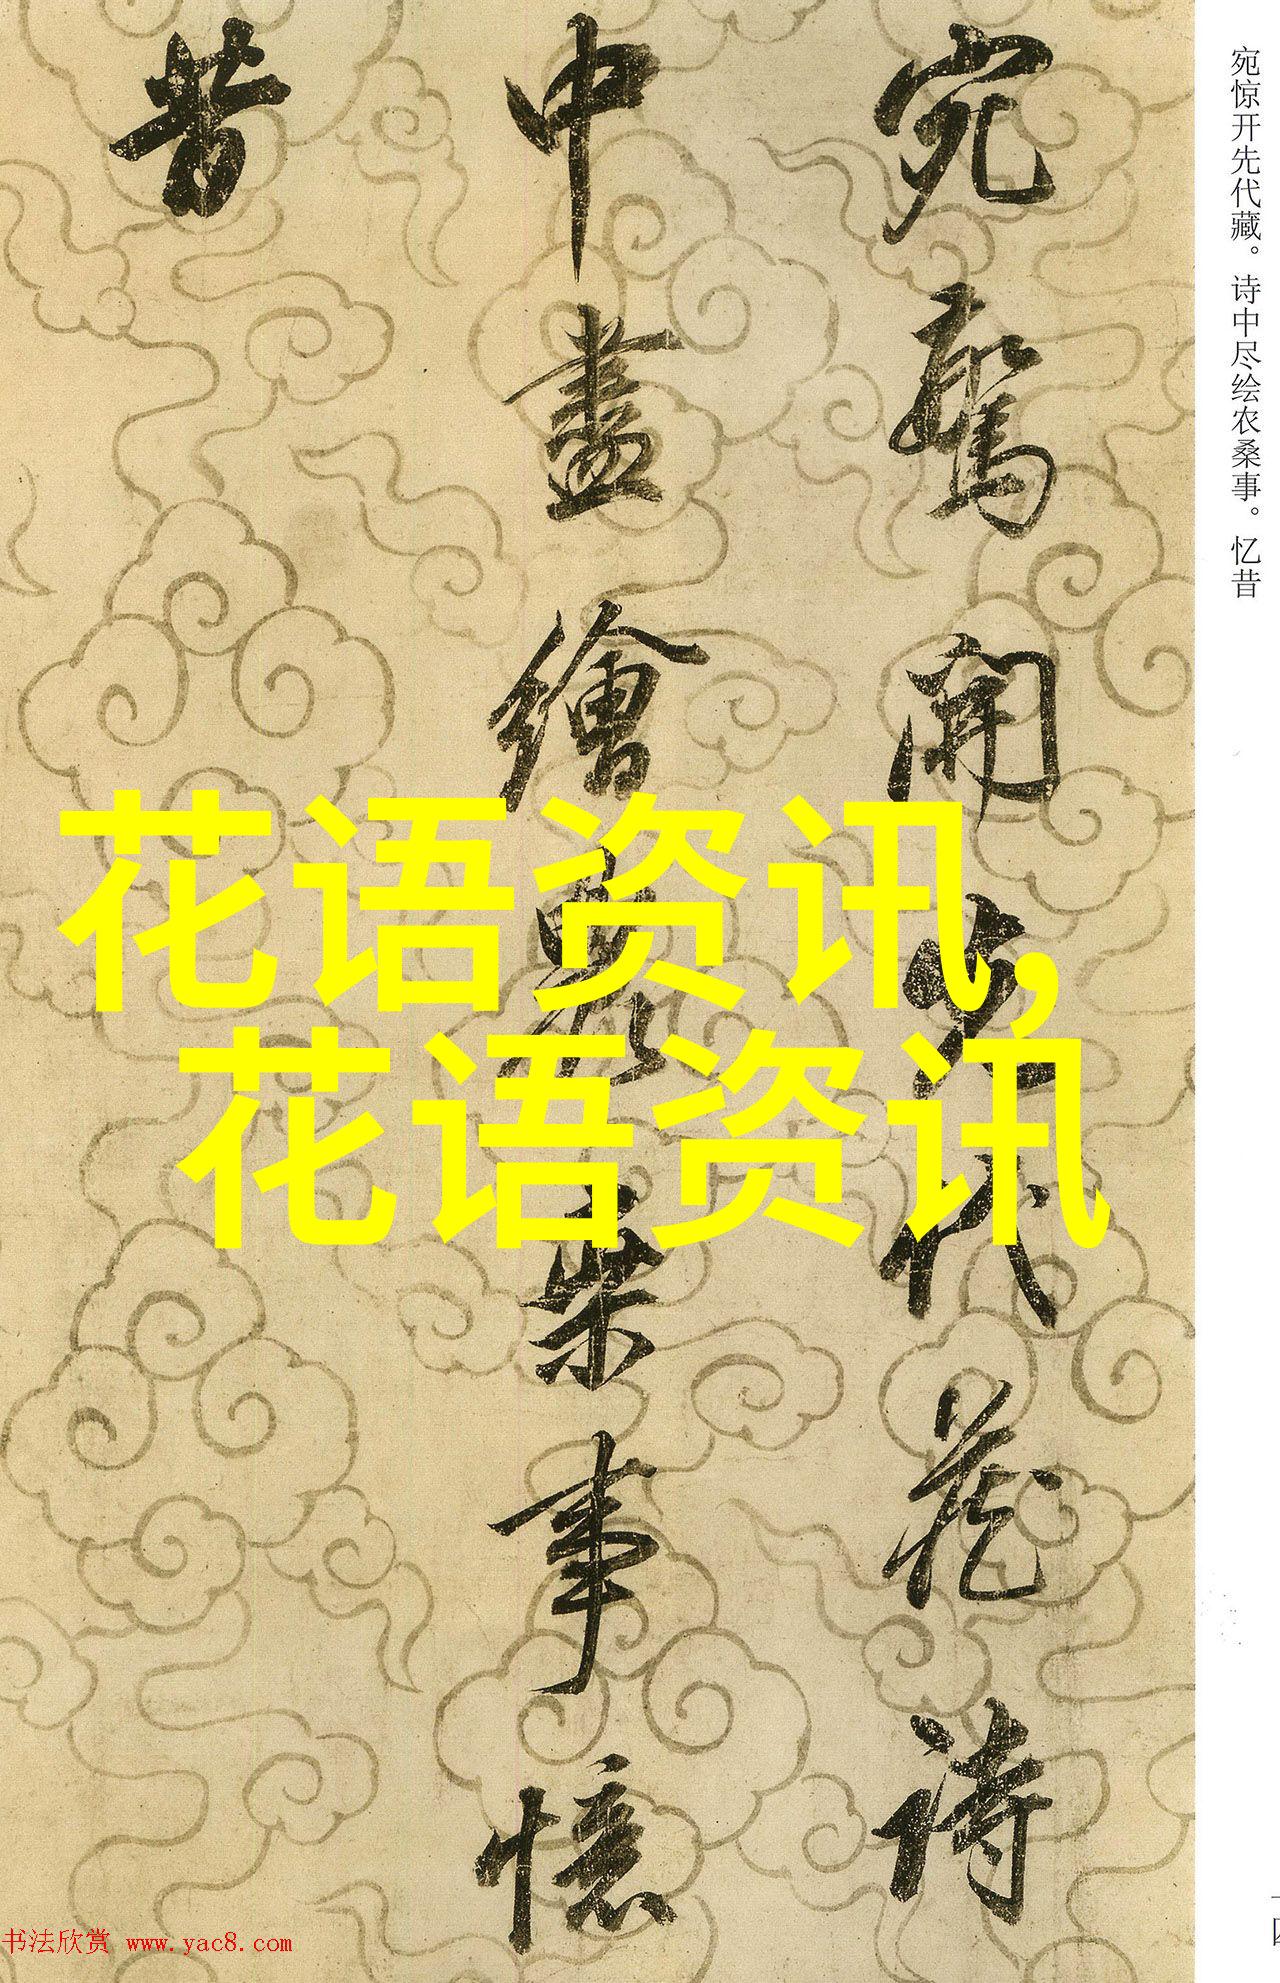 宛驚開先代藏詩
中盡繪農桑事憶
昔
宛惊开先代藏。诗中尽绘农桑事。忆昔
花语资讯,
花语资讯
书法欣赏 www.yac8.com